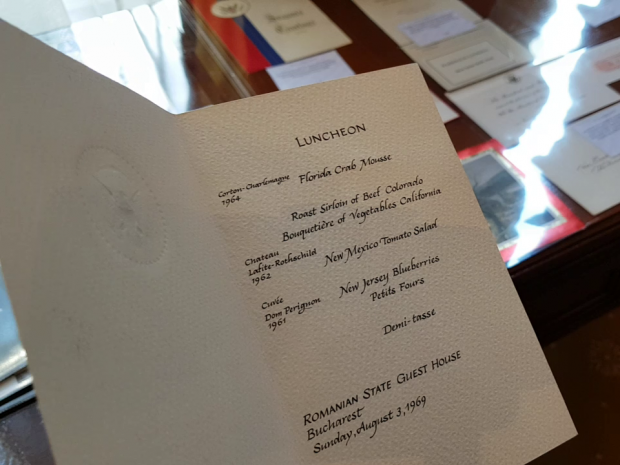 LUNCHEON
Corton-Charlemagne
1964
Florida Crab Mousse
Roast Sirloin of Beef Colorado
Bouquetière of Vegetables California
Chateau
Lafite-Rothschild
1962
New Mexico Tomato Salad
Cuvée
Dom Perignon
1961
New Jersey Blueberries
Petits Fours
Demi-tasse
ROMANIAN STATE GUEST HOUSE
Bucharest
Sunday, August 3, 1969